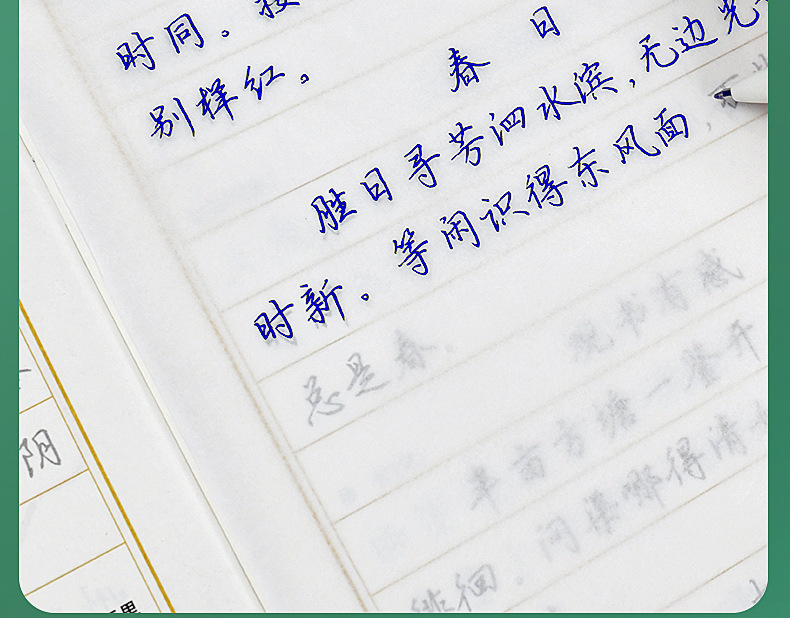 时同。接
别样红。
春日
胜日寻芳泗水滨,无边光
时新。等闲识得东风面,万
总是春。
观书有感
半亩方塘一鉴开
徘徊。问渠哪得清
阴